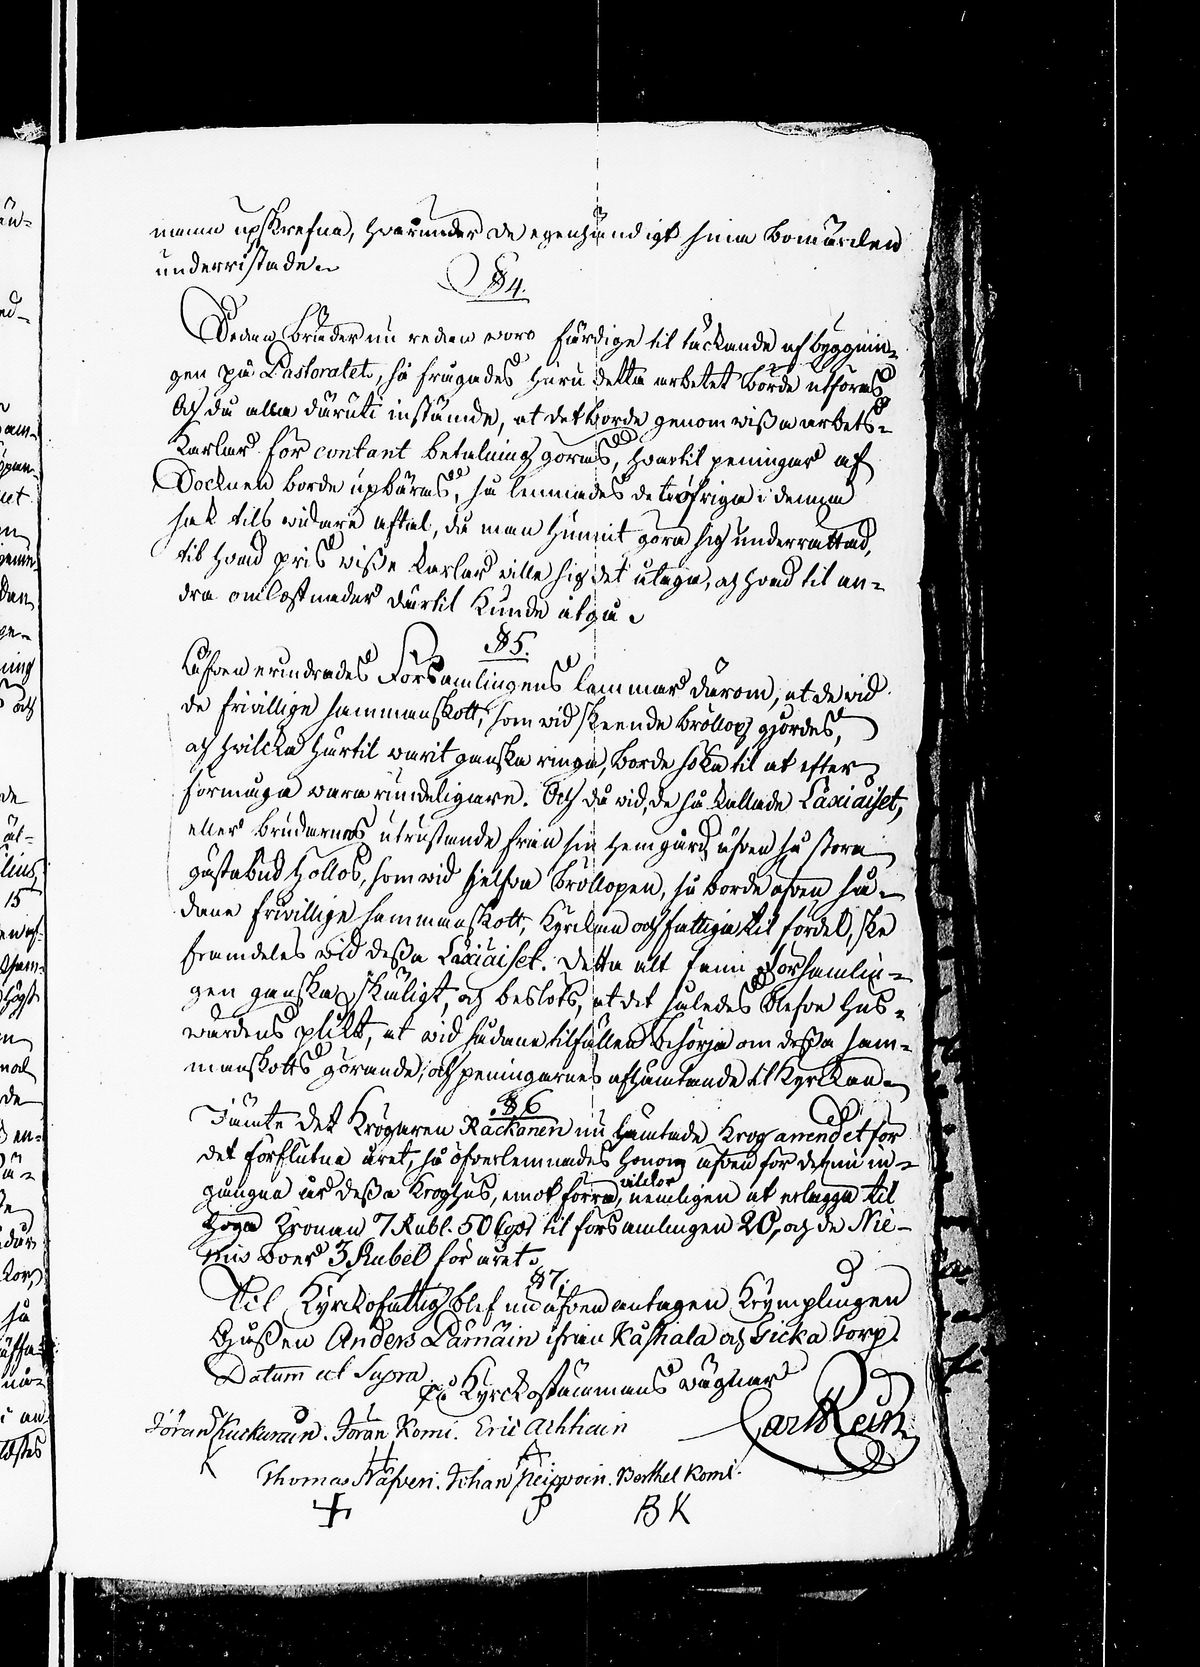 manna upskrefna, hvarunder de egenhändigt sina bomärcken
underristade.
§ 4.
Sedan bräder nu redan voro färdige til täckande af byggnin-
gen på Pastoratet, så frågades huru detta arbetet borde utföras,
Och då alla däruti instämde, at det borde genom vißa arbets-
Karlar för contant betalning göras, hvartil peningar af
Socknen borde upbäras, så lemnades det öfriga i denna
sak tils vidare aftal, då man hunnit göra sig underrättad,
til hvad pris viße Karlar ville sig det utaga, och hvad til an-
dra omkostnader därtil kunde åtgå.
§ 5.
Äfven erindrades Församlingens lemmar därom, at de vid
de frivillige sammanskott, som vid skeende bröllop gjordes,
och hvilcka härtil varit ganska ringa, borde söka til at efter
förmåga vara rundeligare. Och då vid de så kallade Läxiäiset,
eller brudarnes utrustande från sin hemgård, äfven så stora
gästabud hollos, som vid sjelfva bröllopen, så borde äfven så-
dane frivillige sammanskott, Kyrckan och fattiga til fördel, ske
framdeles vid deßa Läxiäiset. Detta alt fann Församlin-
gen ganska skäligt, och beslöts, at det således blefve Hus-
värdens plikt, at vid sådane tilfällen besörja om deßa sam-
manskotts görande, och peningarnes aflämtande til Kyrckan.
§ 6
Jämte det Krögaren Räckänen nu hämtade Krog arrendet för
det förflutna året, så öfverlemnades honom äfven för det nu in-
gångna år deßa Kroghus, emot förra vilckor, nemligen at erlägga til
Höga Kronan 7 Rubl. 50 Cop. til församlingen 20, och de Nie-
mis boer 3 Rubel för året.
§ 7.
Til Kyrckofattig blef nu äfven antagen Krymplingen
Gußen Anders Pärnäin ifrån Käshala och Sicka Torp.
Datum ut Supra.
På Kyrckostämmans vägnar
Carl Rein
Jöran Kuckurain. Jöran Romi. Eric Achhain
K
Thomas Näfveri. Johan Peippoin. Berthel Romi.
+ P B K